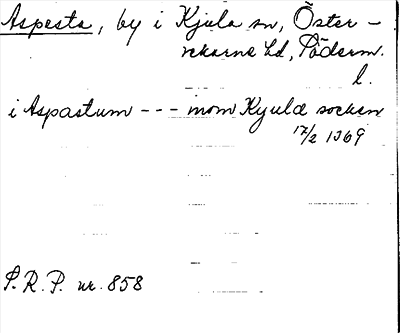 Aspesta, by i Kjula sn, Öster-
rekarne hd, Söderm.
l.
i Aspastum --- inom Kyula socken
17/2 1369
S.R.P. nr. 858